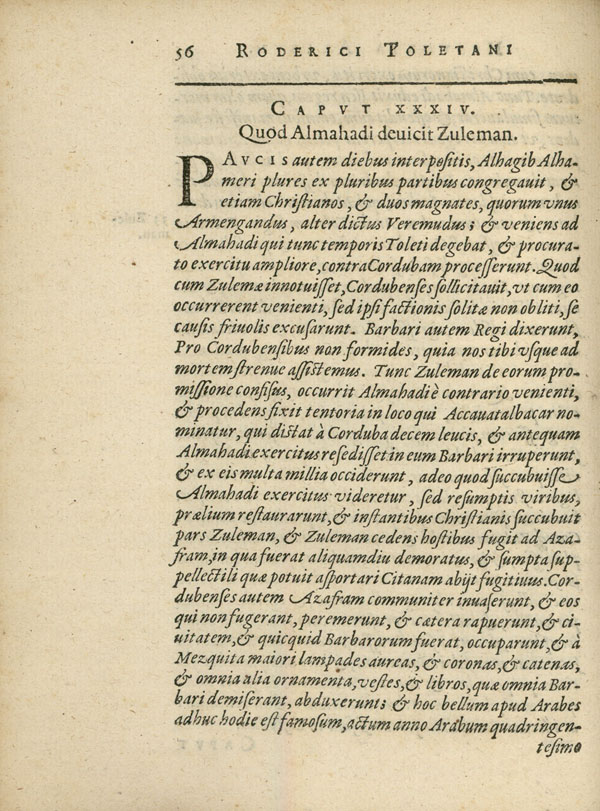 56 RODERICI TOLETANI
CAPVT XXXIV.
Quod Almahadi deuicit Zuleman.
PAVCIS autem diebus interpositis, Alhagib Alha-
meri plures ex pluribus partibus congregauit, &
etiam Christianos, & duos magnates, quorum vnus
Armengandus, alter dictus Veremudus; & veniens ad
Almahadi qui tunc temporis Toleti degebat, & procura-
to exercitu ampliore, contra Cordubam processerunt. Quod
cum Zulemæ innotuisset, Cordubenses sollicitauit, vt cum eo
occurrerent venienti, sed ipsi factionis solitæ non obliti, se
causis friuolis excusarunt. Barbari autem Regi dixerunt,
Pro Cordubensibus non formides, quia nos tibi vsque ad
mortem strenue assistemus. Tunc Zuleman de eorum pro-
missione consisus, occurrit Almahadi è contrario venienti,
& procedens fixit tentoria in loco qui Accauatalbacar no-
minatur, qui distat à Corduba decem leucis, & antequam
Almahadi exercitus resedisset in eum Barbari irruperunt,
& ex eis multa millia occiderunt, adeo quod succubuisse
Almahadi exercitus videretur, sed resumptis viribus,
prælium restaurarunt, & instantibus Christianis succubuit
pars Zuleman, & Zuleman cedens hostibus fugit ad Aza-
fram, in qua fuerat aliquamdiu demoratus, & sumpta sup-
pellectili quæ potuit asportari Citanam abijt fugitiuus. Cor-
dubenses autem Azafram communiter inuaserunt, & eos
qui non fugerant, peremerunt, & cætera rapuerunt, & ci-
uitatem, & quicquid Barbarorum fuerat, occuparunt, & à
Mezquita maiori lampades aureas, & coronas, & catenas,
& omnia alia ornamenta, vestes, & libros, quæ omnia Bar-
bari demiserant, abduxerunt; & hoc bellum apud Arabes
adhuc hodie est famosum, actum anno Arabum quadringen-
tesimo